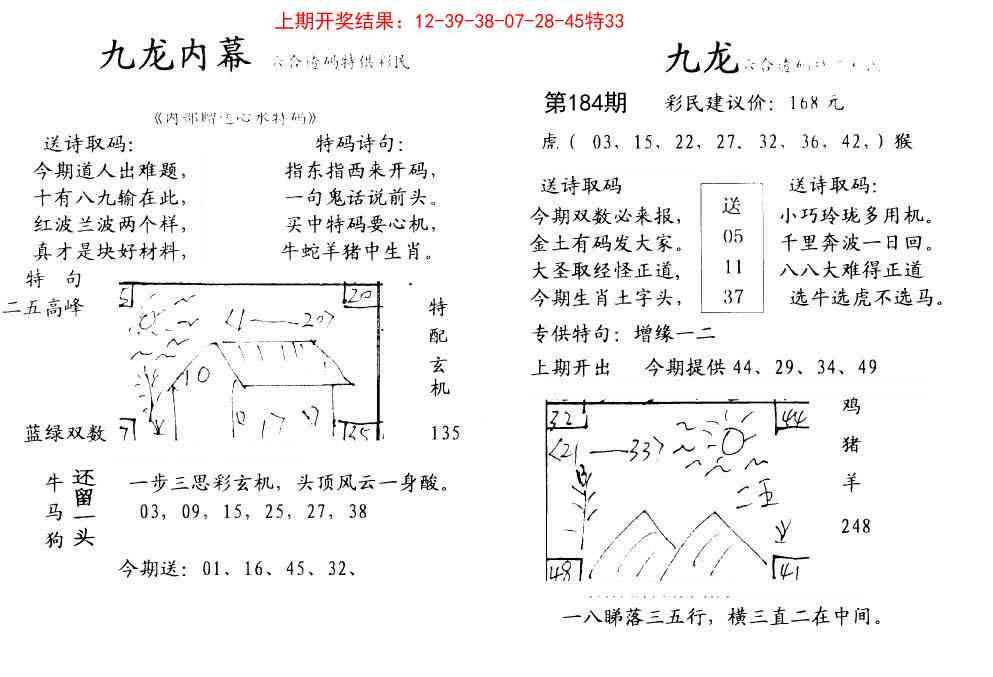 上期开奖结果：12-39-38-07-28-45特33
九龙内幕 六合透码特供彩民
《内部赠送心水特码》
送诗取码：
今期道人出难题，
十有八九输在此，
红波兰波两个样，
真才是块好材料，
特码诗句：
指东指西来开码，
一句鬼话说前头。
买中特码要心机，
牛蛇羊猪中生肖。
特 句
二五高峰
蓝绿双数
5
20
<1——20>
10
0 17 17
7
35
特
配
玄
机
135
牛
马
狗
还
留
一
头
一步三思彩玄机，头顶风云一身酸。
03，09，15，25，27，38
今期送：01、16、45、32、
九龙 六合透码
第184期 彩民建议价：168 元
虎（ 03、15、22、27．32、36、42，）猴
送诗取码
今期双数必来报，
金土有码发大家。
大圣取经怪正道，
今期生肖土字头，
送
05
11
37
送诗取码：
小巧玲珑多用机。
千里奔波一日回。
八八大难得正道
选牛选虎不选马。
专供特句：增缘一二
上期开出 今期提供 44、29、34、49
32
44
<21——33>
48
41
鸡
猪
羊
248
一八睇落三五行，横三直二在中间。